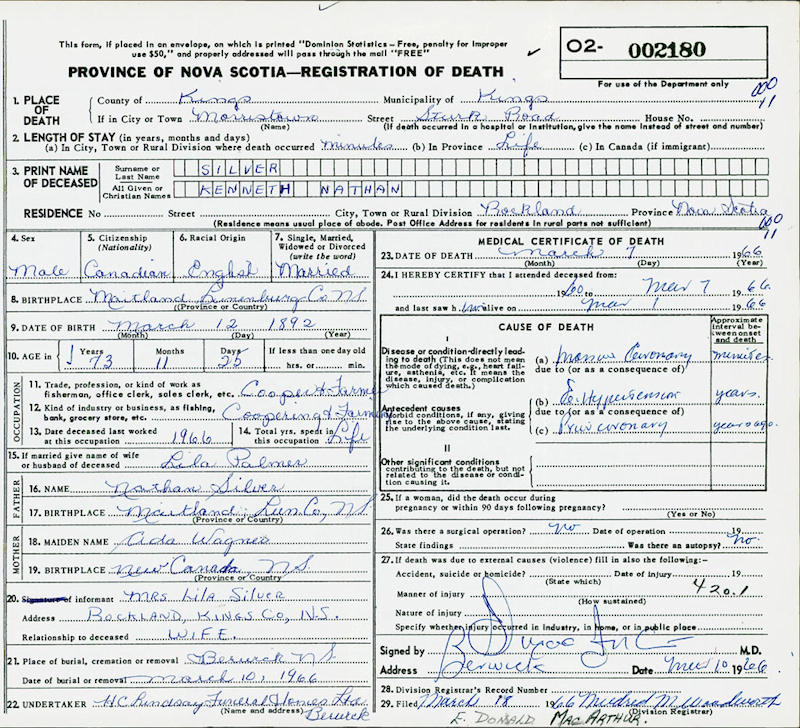 This form, if placed in an envelope, on which is printed "Dominion Statistics – Free, penalty for improper
use $50," and properly addressed will pass through the mail "FREE"
PROVINCE OF NOVA SCOTIA—REGISTRATION OF DEATH
O2- 002180
For use of the Department only
000
11
1. PLACE OF DEATH
County of Kings Municipality of Kings
If in City or Town Morristown Street Road House No.
(Name) (If death occurred in a hospital or institution, give the name instead of street and number)
2. LENGTH OF STAY (in years, months and days)
(a) In City, Town or Rural Division where death occurred minutes (b) In Province Life (c) In Canada (if immigrant)
3. PRINT NAME OF DECEASED
Surname or Last Name SILVER
All Given or Christian Names KENNETH NATHAN
RESIDENCE No Street City, Town or Rural Division Rockland Province Nova Scotia
(Residence means usual place of abode. Post Office Address for residents in rural parts not sufficient)
000
11
4. Sex
Male
5. Citizenship (Nationality)
Canadian
6. Racial Origin
English
7. Single, Married, Widowed or Divorced (write the word)
Married
8. BIRTHPLACE Maitland Lunenburg Co NS
(Province or Country)
9. DATE OF BIRTH March 12 1892
(Month) (Day) (Year)
10. AGE in Years Months Days If less than one day old
73 11 25 hrs. or min.
OCCUPATION
11. Trade, profession, or kind of work as
fisherman, office clerk, sales clerk, etc. Cooper & Farmer
12. Kind of industry or business, as fishing,
bank, grocery store, etc. Coopering & Farmer
13. Date deceased last worked at this occupation 1966
14. Total yrs. spent in this occupation Life
15. If married give name of wife
or husband of deceased Lila Palmer
FATHER
16. NAME Nathan Silver
17. BIRTHPLACE Maitland Lun Co, NS
(Province or Country)
MOTHER
18. MAIDEN NAME Ada Wagner
19. BIRTHPLACE New Canada, NS
(Province or Country)
20. Signature of informant MRS Lila Silver
Address ROCKLAND, KINGS CO, N.S.
Relationship to deceased WIFE.
21. Place of burial, cremation or removal Berwick NS
Date of burial or removal March 10, 1966
22. UNDERTAKER HC Lindsay Funeral Homes Ltd
(Name and address) Berwick
MEDICAL CERTIFICATE OF DEATH
23. DATE OF DEATH March 7 1966
(Month) (Day) (Year)
24. I HEREBY CERTIFY that I attended deceased from:
1960 to Mar 7 1966
and last saw h im alive on Mar 1 1966
CAUSE OF DEATH
Approximate interval between onset and death
I
Disease or condition directly leading to death (This does not mean the mode of dying, e.g., heart failure, asthenia, etc. It means the disease, injury, or complication which caused death.)
(a) Massive Coronary minutes
due to (or as a consequence of)
Antecedent causes
Morbid conditions, if any, giving rise to the above cause, stating the underlying condition last.
(b) Hypertension years.
due to (or as a consequence of)
(c) Prev coronary years ago.
II
Other significant conditions
contributing to the death, but not related to the disease or condition causing it.
25. If a woman, did the death occur during
pregnancy or within 90 days following pregnancy?
(Yes or No)
26. Was there a surgical operation? no Date of operation 19
State findings Was there an autopsy? No.
27. If death was due to external causes (violence) fill in also the following:-
Accident, suicide or homicide? Date of injury 19
(State which)
Manner of injury 420.1
(How sustained)
Nature of injury
Specify whether injury occurred in industry, in home, or in public place
Signed by M.D.
Address Berwick Date Mar 10 1966
28. Division Registrar's Record Number
29. Filed March 18 1966 Mildred M. Woodworth
(Division Registrar)
E. DONALD MAC ARTHUR.